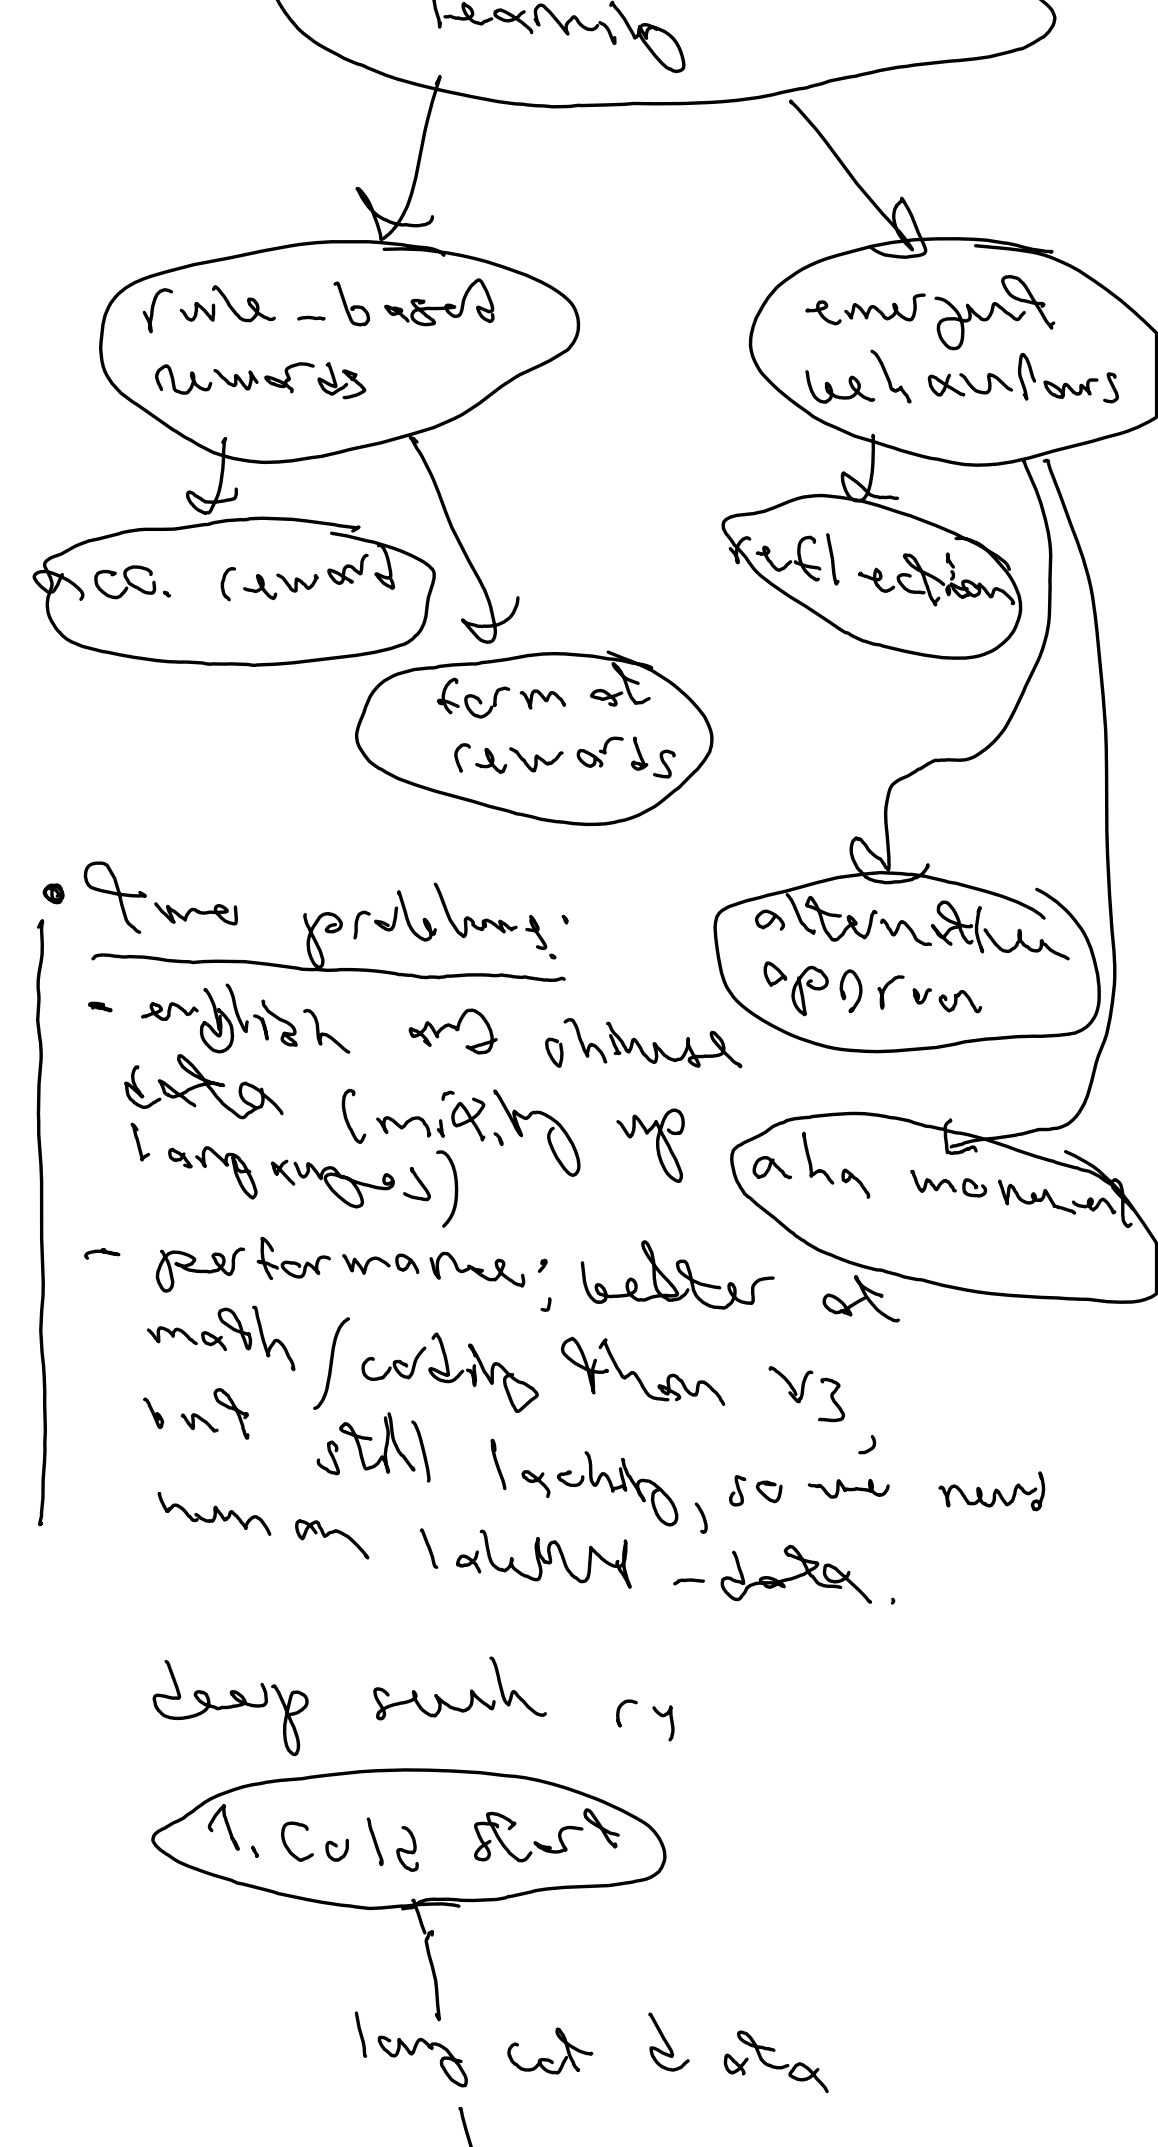 learning
rule-based
rewards
emergent
behaviours
acc. reward
reflection
format
rewards
alternative
two problems:
- english and chinese
data (mixing up
languages)
aha moment
- performance; better at
math/coding than v3,
but still lacking, so we need
human labelled-data.
deep seek r1
1. Cold start
long cot data